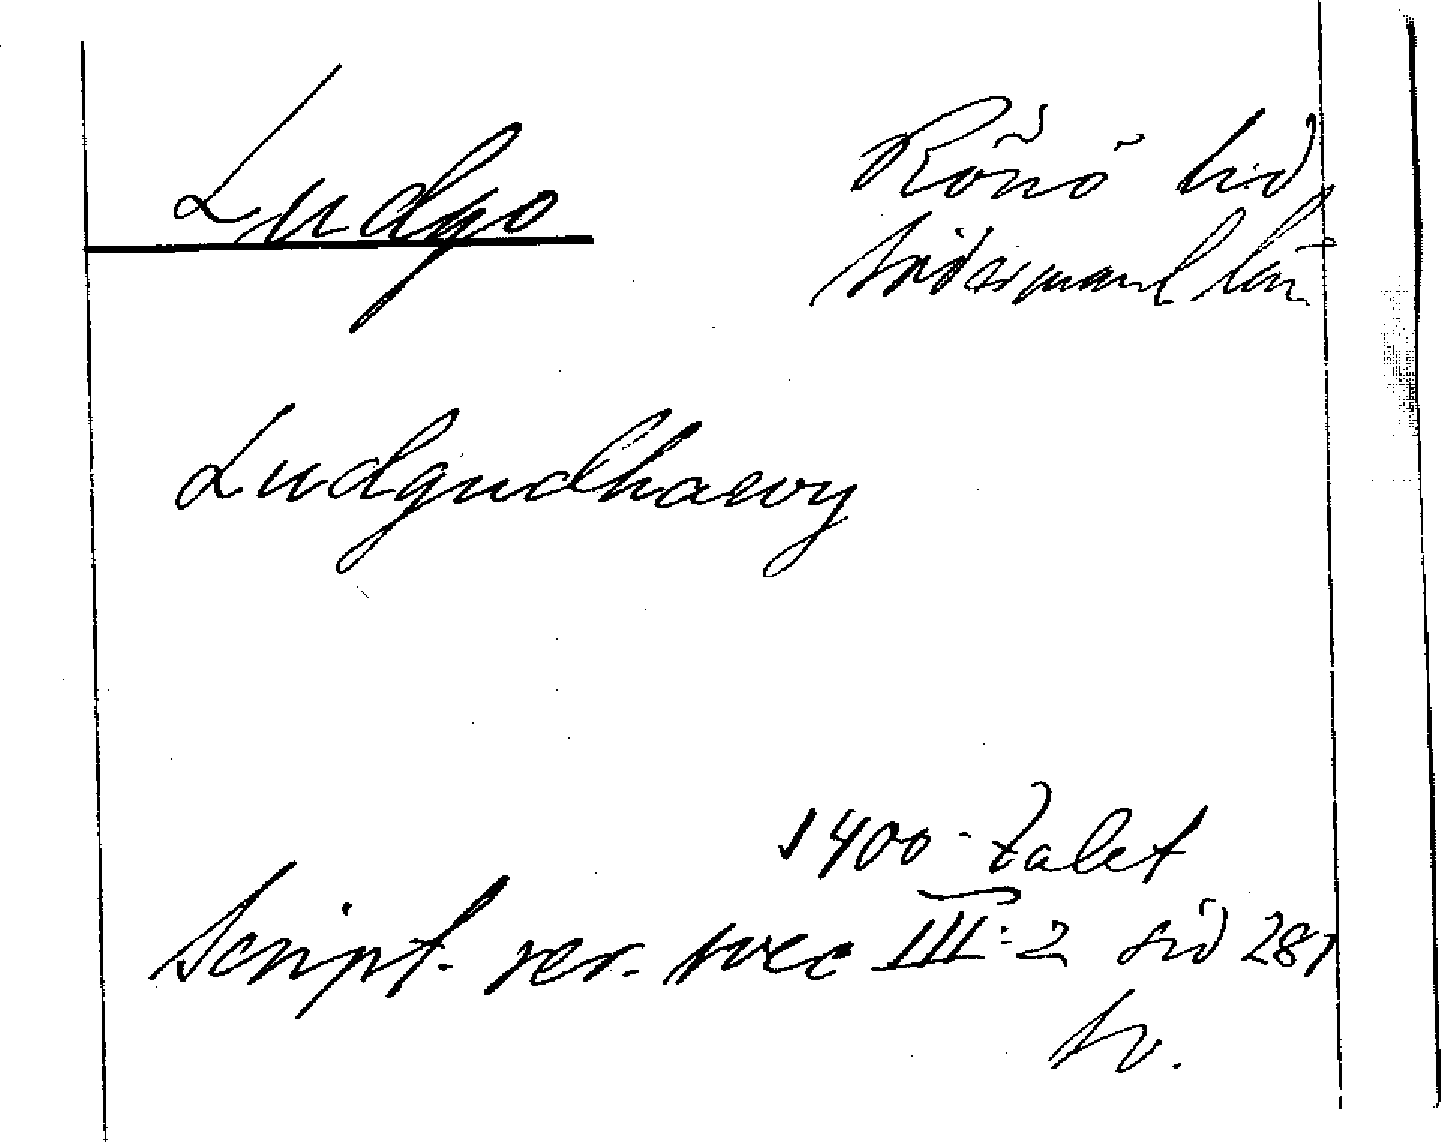 Ludgo
Rönö hd,
Södermanl län
Ludgudhawy
1400-talet
Script. rer. svec III:2 sid 281
sv.